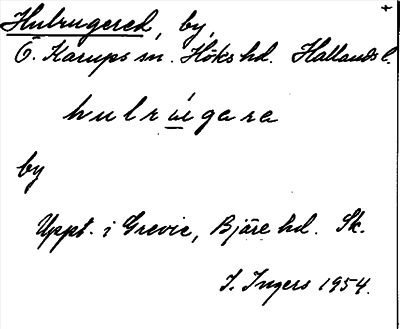 Hulrugered, by,
Ö. Karups sn. Höks hd. Hallands l.
hulrúgara
by
Uppt. i Grevie, Bjäre hd. Sk.
I. Ingers 1954.